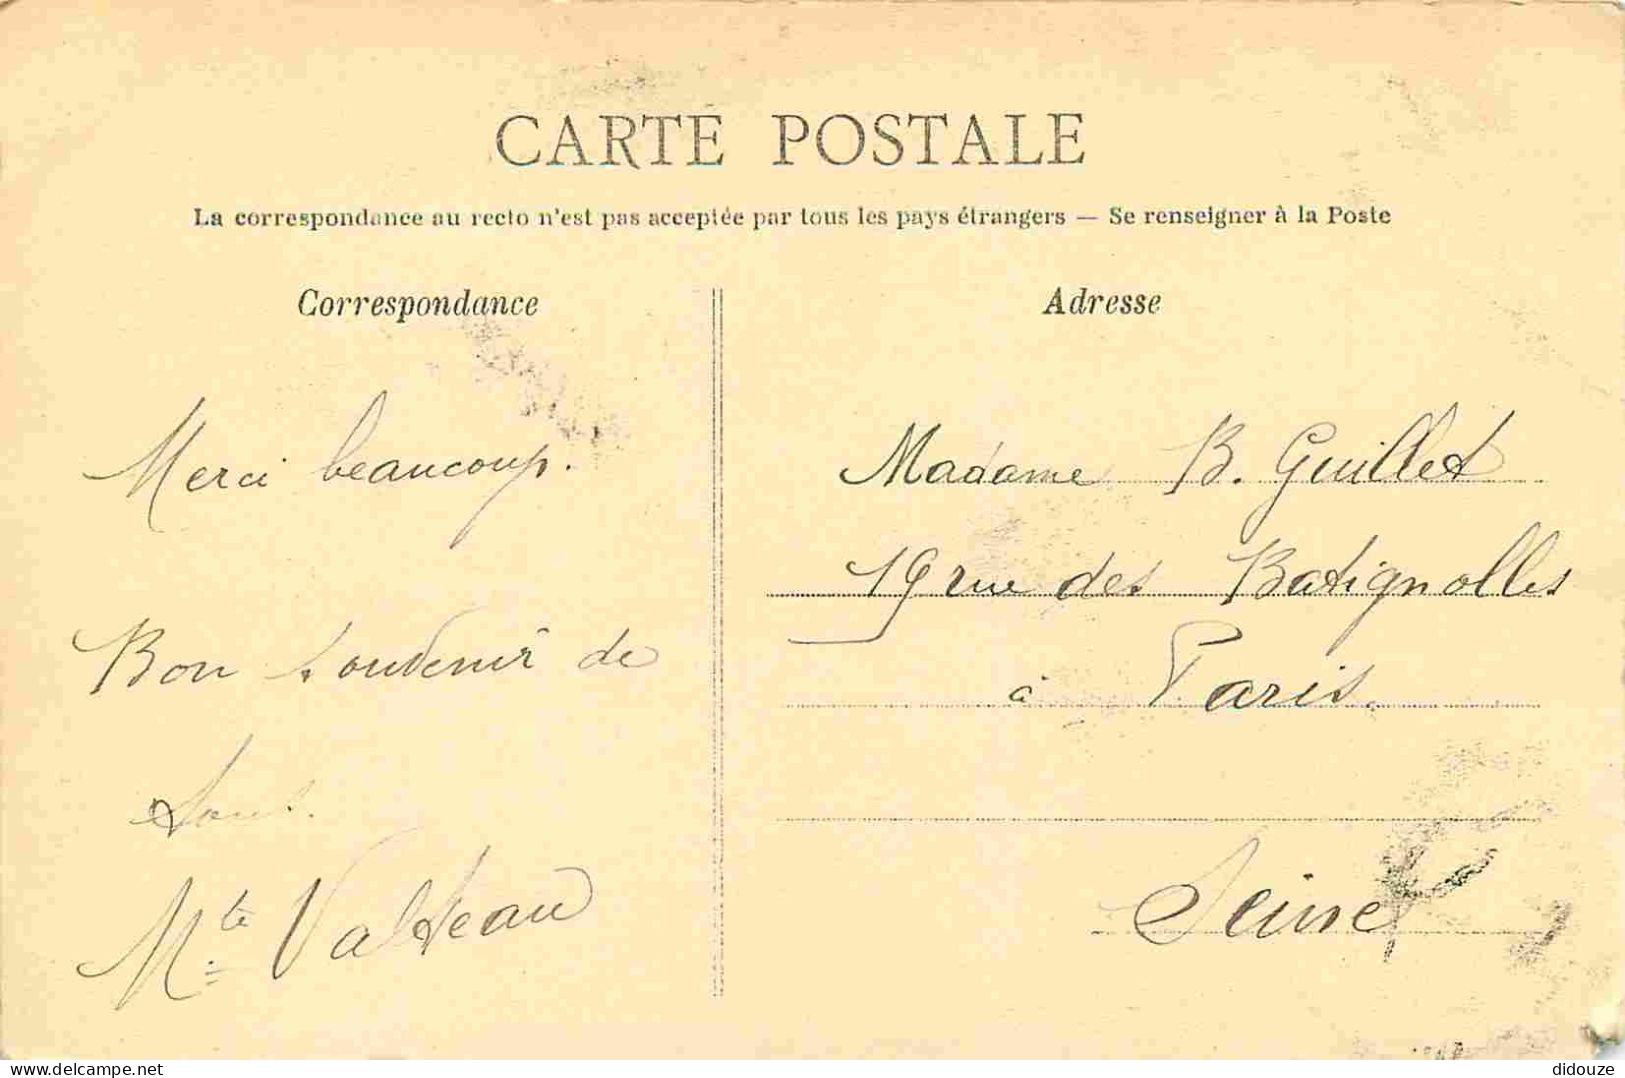 CARTE POSTALE
La correspondance au recto n'est pas acceptée par tous les pays étrangers — Se renseigner à la Poste
Correspondance
Merci beaucoup.
Bon Souvenir de
tous.
M.te Valteau
Adresse
Madame B. Guillet
19 rue des Batignolles
à Paris.
Seine
delcampe.net
didouze